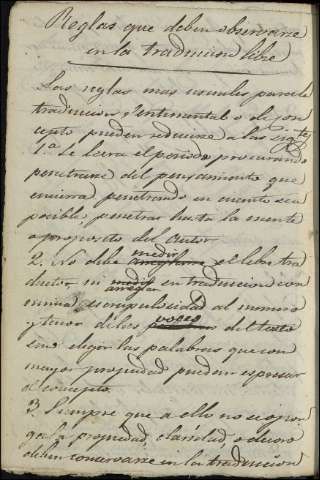 Reglas que deben observarse
en la traduccion libre
Las reglas mas usuales para la
traduccion sentimental o de con
cepto pueden reducirse a las sigtes
1.a Se leera el periodo procurando
penetrarse del pensamiento que
encierra penetrando en cuanto sea
posible, penetrar hasta la mente
o proposito del Autor
2. No debe medir el libre tra
ductor ni arreglar su traduccion con
nimia escrupulosidad al numero
y tenor de las voces del texto
sino elegir las palabras que con
mayor propiedad puedan espresar
el concepto.
3. Siempre que a ello no se opon
ga la propiedad, claridad, o decoro
deben conservarse en la traduccion